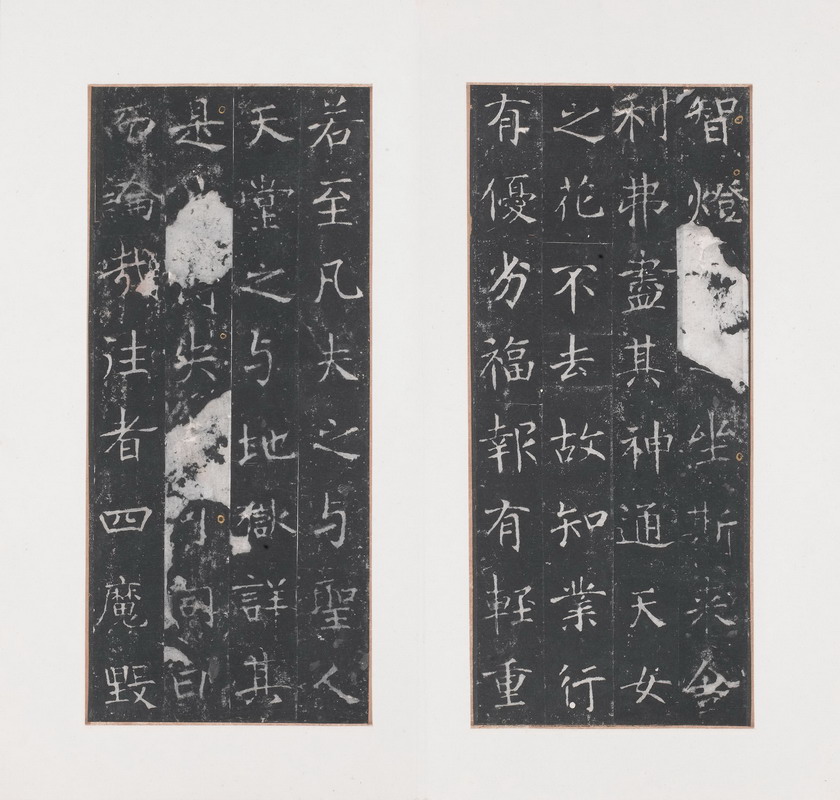 智燈坐斯來舍
利弗盡其神通天女
之花不去故知業行
有優劣福報有輕重
若至凡夫之与聖人
天堂之与地獄詳其
是失可同日
而論哉往者四魔毀